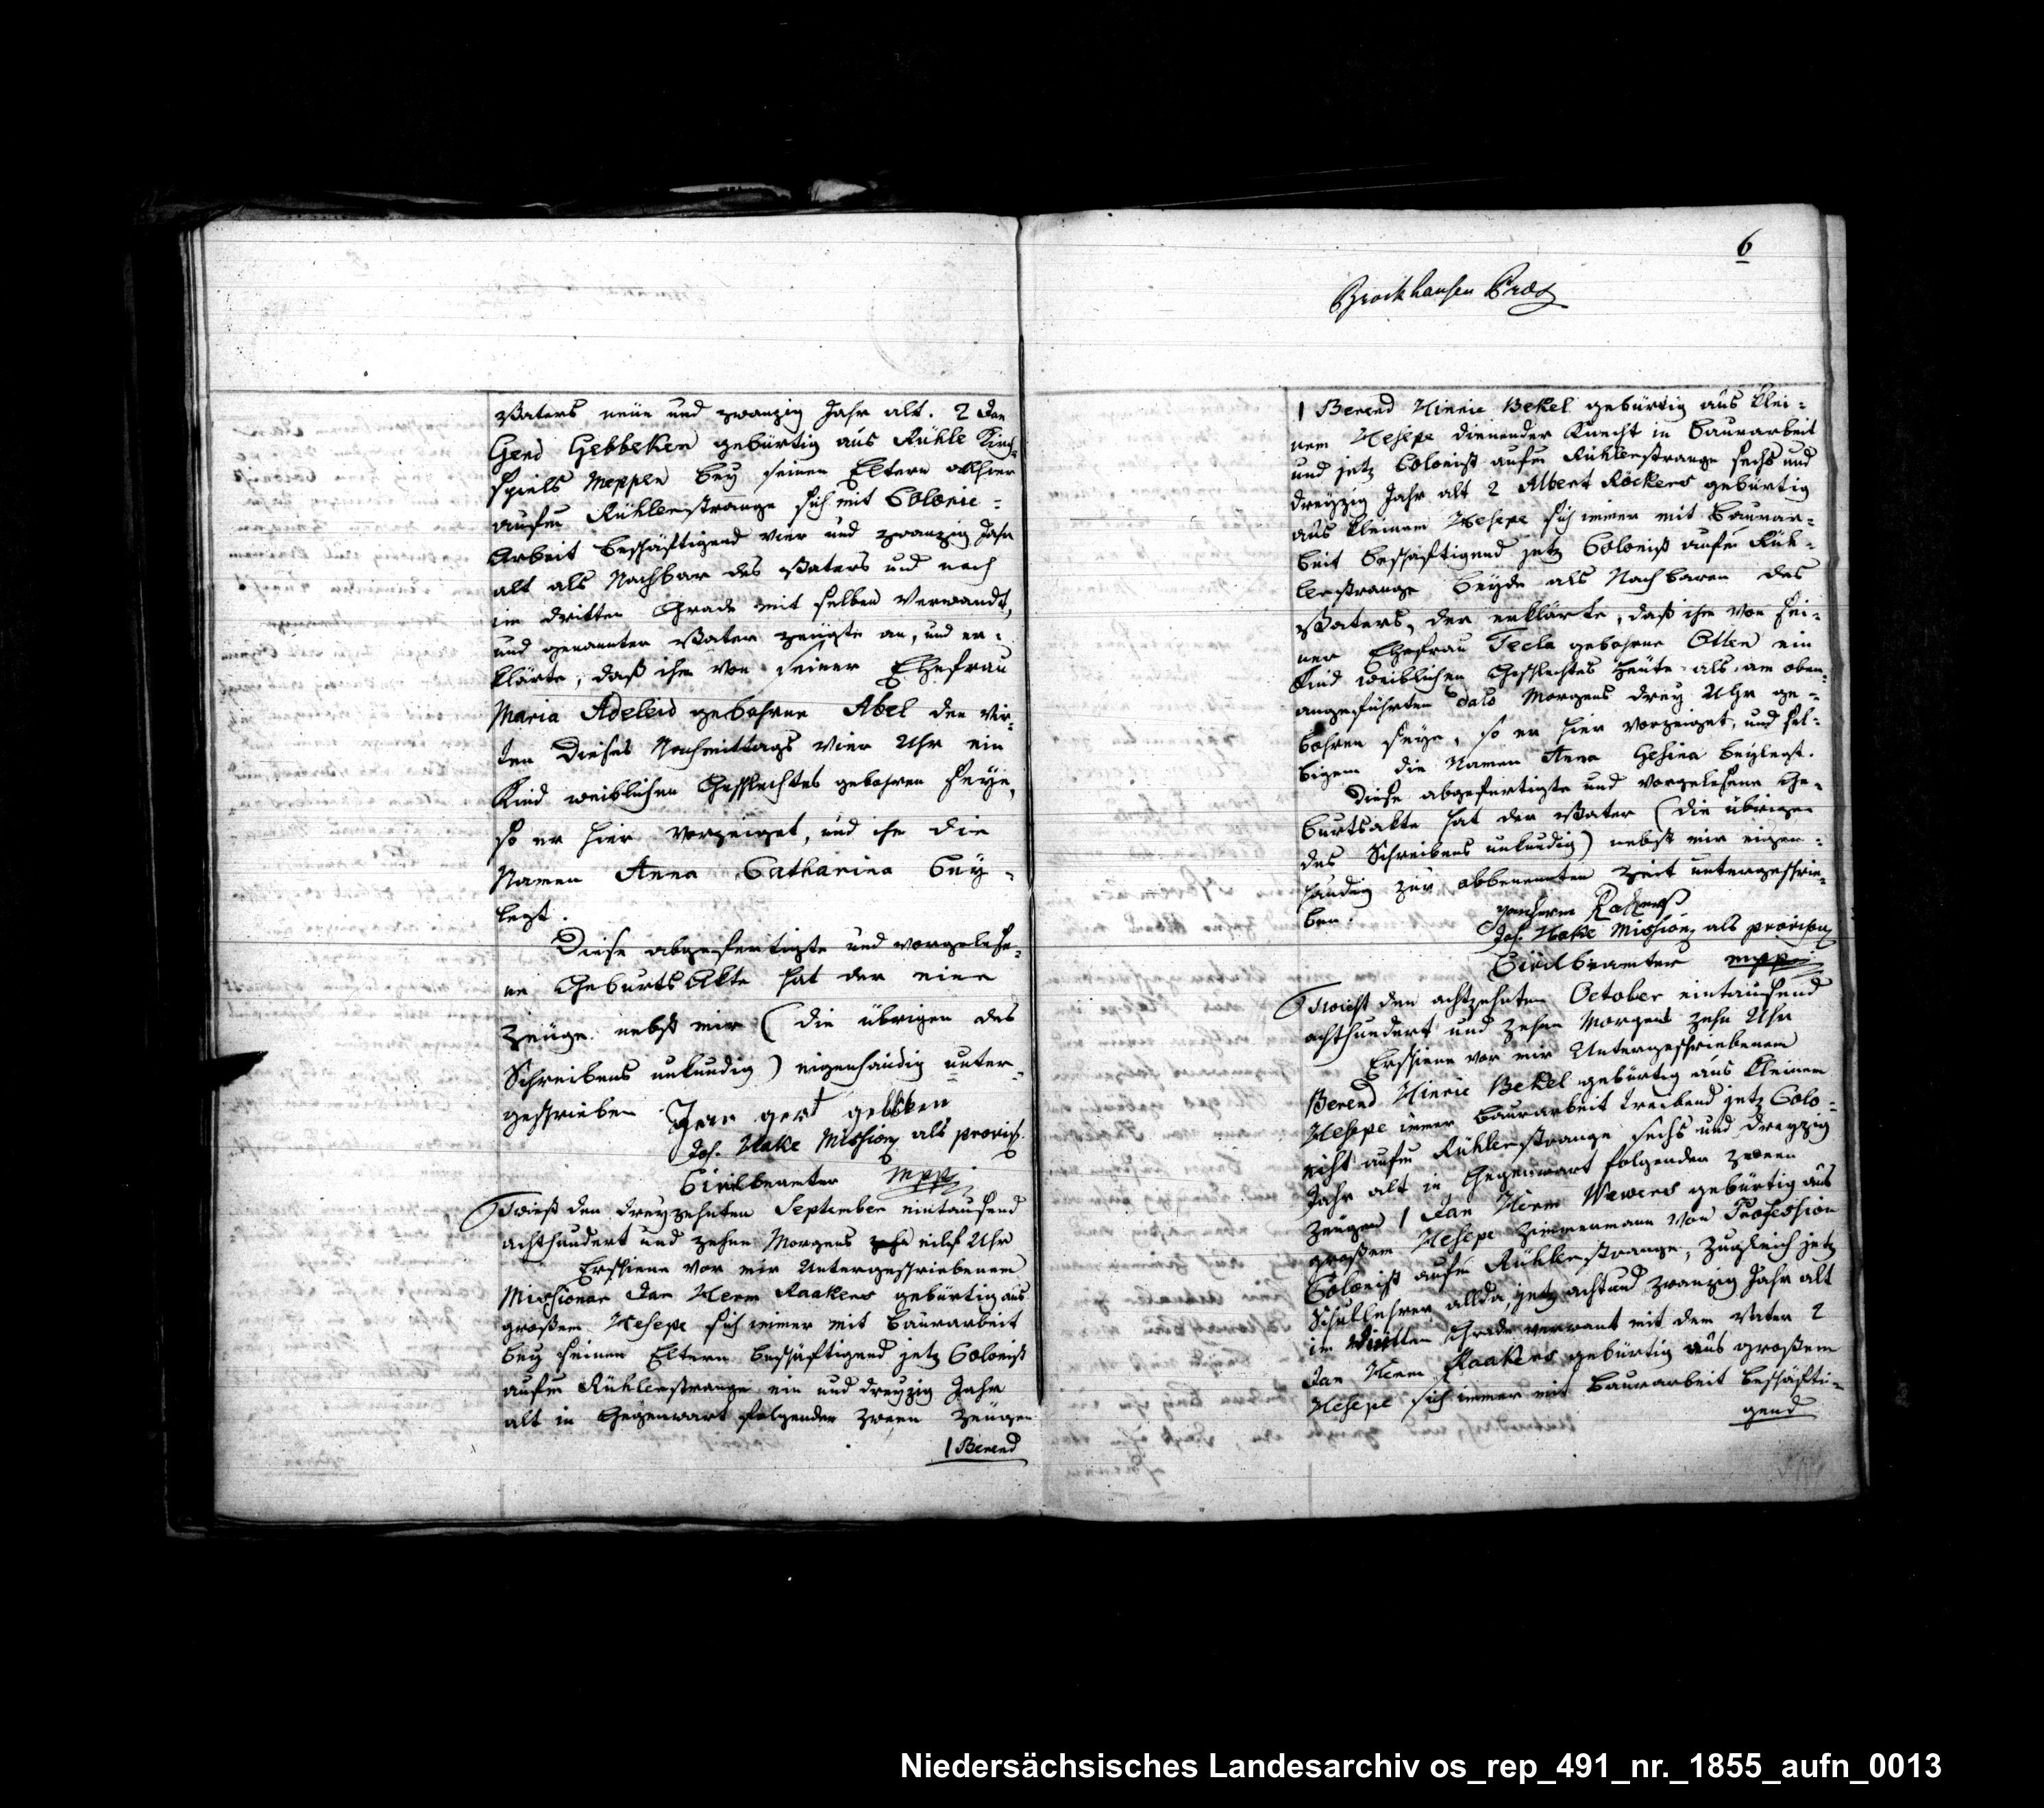 Vaters neün und zwanzig Jahr alt. 2 Jan
Gerd Gebbeken gebürtig aus Rühle Kirch-
spiels Meppen bey seinen Eltern allhier
aufm Rühlerstrange sich mit Colonie-
Arbeit beschäftigend vier und zwanzig Jahr
alt als Nachbar des Vaters und noch
im dritten Grade mit selben Verwandt,
und genannter Vater zeugte an, und er-
klärte, daß ihm von seiner Ehefrau
Maria Adeleid gebohrne Abel den vier-
ten Dieses Nachmittags vier Uhr ein
Kind weiblichen Geschlechtes gebohren seye,
so er hier vorzeiget, und ihm die
Namen Anna Catharina bey-
legt.
Diese abgefertigte und vorgelese-
ne GeburtsAkte hat der eine
Zeuge nebst mir (die übrigen des
Schreibens unkundig) eigenhändig unter-
geschrieben Jan gerd gebbken
Jos. Hake Mission als provis.
Civilbeamter mpp
Twist den dreyzehnten September eintausend
achthundert und zehen Morgens eilf Uhr
Erschiene vor mir Untergeschriebenem
Missionar Jan Herm Raakers gebürtig aus
großem Hesepe sich immer mit Bauarbeit
bey seinen Eltern beschäftigend jetz Colonist
aufm Rühlerstrange ein und dreyzig Jahr
alt in Gegenwart folgender zween Zeugen
1 Berend
6
Brockhausen Præs
1 Berend Hinric Bekel gebürtig aus klei-
nem Hesepe dienender Knecht in Baurarbeit
und jetz Colonist aufm Rühlerstrange sechs und
dreyzig Jahr alt 2 Albert Röckers gebürtig
aus kleinem Hesepe sich immer mit Baurar-
beit beschäftigend jetz Colonist aufm Rüh-
lerstrange beyde als Nachbaren des
Vaters, der erklärte, daß ihm von sei-
ner Ehefrau Tecla gebohrne Otten ein
Kind weiblichen Geschlechtes heute als am oben-
angeführten dato Morgens drey Uhr ge-
bohren seye, so er hier vorzeiget, und sel-
bigem die Namen Anna Gesina beylegt.
Diese abgefertigte und vorgelesene Ge-
burtsakte hat der Vater (die übrigen
des Schreibens unkundig) nebst mir eigen-
händig zur obbenennten Zeit untergeschrie-
ben. janherm Rakers
Jos. Hake Mission als provison
Civilbeamter mpp
Twist den achtzehnten October eintausend
achthundert und zehen Morgens zehn Uhr
Erschiene vor mir Untergeschriebenem
Berend Hinric Bekel gebürtig aus kleinem
Hesepe immer Baurarbeit treibend jetz Colo-
nist aufm Rühlerstrange sechs und dreyzig
Jahr alt in Gegenwart folgender zween
Zeugen 1 Jan Herm Wewers gebürtig aus
großem Hesepe Zimmermann von Profession
Colonist aufm Rühlerstrange, zugleich jetz
Schullehrer allda, jetz acht und zwanzig Jahr alt
im Grade verwant mit dem Vater 2
Jan Herm Raakers gebürtig aus großem
Hesepe sich immer mit Baurarbeit beschäfti-
gend
Niedersächsisches Landesarchiv os_rep_491_nr._1855_aufn_0013